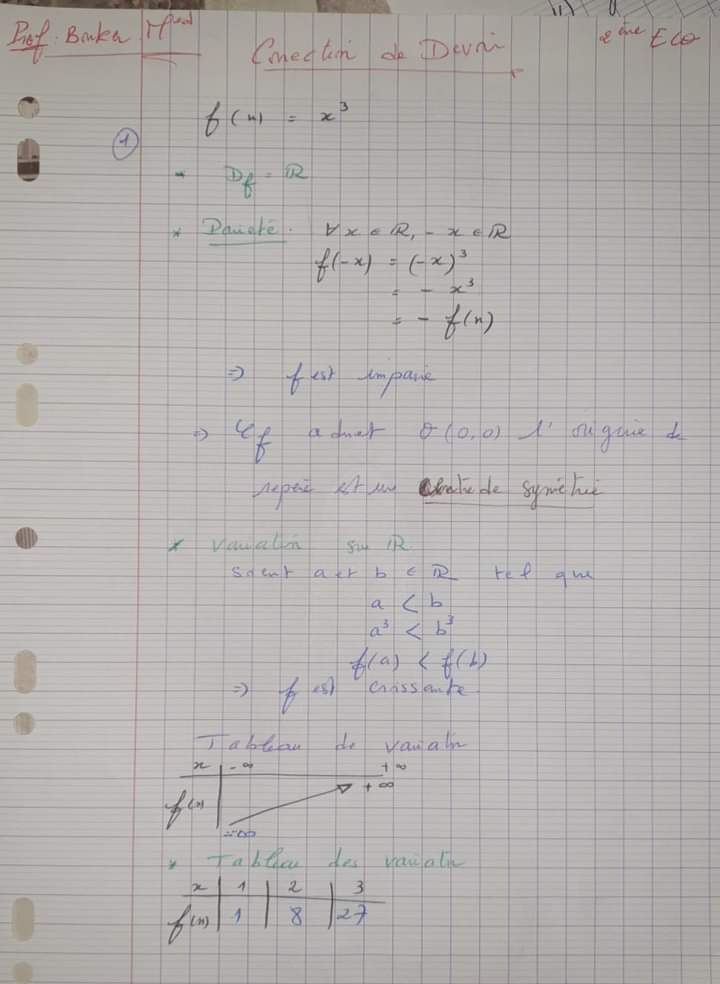 Prof. Bouker Med
Correction de Devoir
2ème ECO
f(x) = x³
1
Df = ℝ
* Parité. ∀x ∈ ℝ, -x ∈ ℝ
f(-x) = (-x)³
= - x³
= - f(x)
=> f est impaire
=> Cf admet O(0,0) l'origine de
repère est un centre de symétrie
* Variation sur ℝ
Soient a et b ∈ ℝ tel que
a < b
a³ < b³
f(a) < f(b)
=> f est croissante.
Tableau de variatn
x -∞ +∞
f(x) +∞
-∞
* Tableau des variatn
x 1 2 3
f(x) 1 8 27